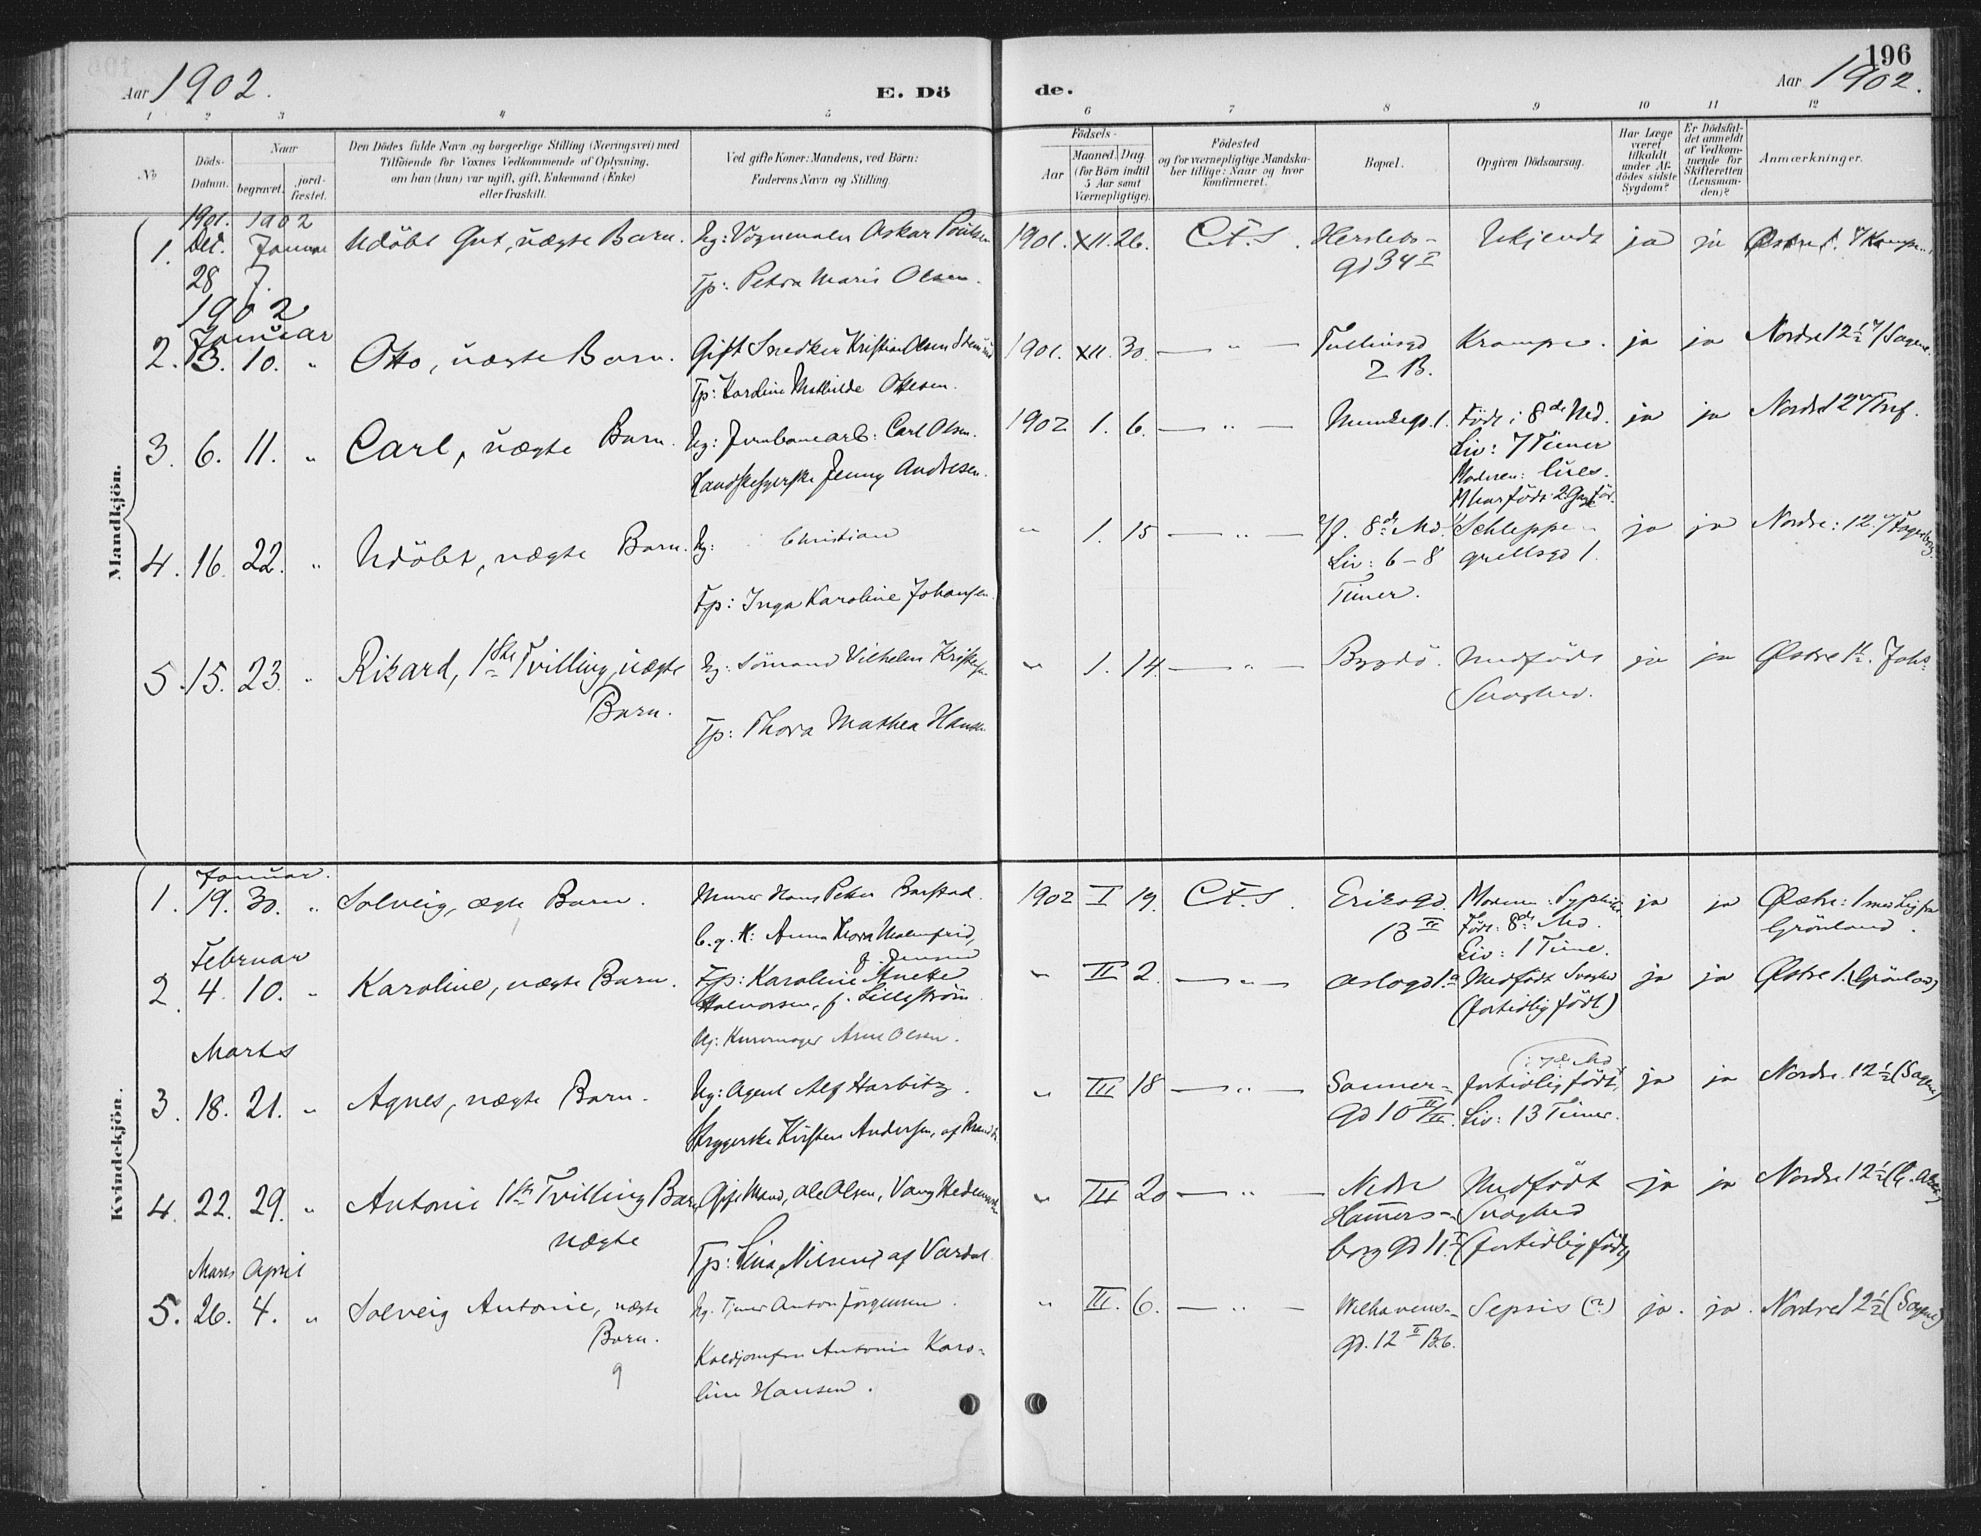 196
Aar 1902.
E. Dö
de.
Aar 1902.
1 2 3 4 5 6 7 8 9 10 11 12
No
Döds-
Datum.
Naar
begravet.
jord-
fæstet.
Den Dödes fulde Navn og borgerlige Stilling (Næringsvei) med
Tilföiende for Voxnes Vedkommende af Oplysning,
om han (hun) var ugift, gift, Enkemand (Enke)
eller fraskilt.
Ved gifte Koner: Mandens, ved Börn:
Faderens Navn og Stilling.
Födsels-
Aar
Maaned. Dag.
(for Börn indtil
5 Aar samt
Værnepligtige).
Födested
og for værnepligtige Mandska-
ber tillige: Naar og hvor
konfirmeret.
Bopæl.
Opgiven Dödsaarsag.
Har Læge
været
tilkaldt
under Af-
dödes sidste
Sygdom?
Er Dödsfal-
det anmeldt
af Vedkom-
mende for
Skifteretten
(Lensman-
den)?
Anmærkninger.
Mandkjön.
1901. 1902
1. Det. Januar Udöbt Gut, uægte Barn. Ug: Vognmaler Oskar 1901. XII. 26. C.F.S. Herslebs- Ukjendt ja ja Østre
28 7. gd 34 I
Tp: Petra Marie Olsen.
1902
Januar
2. 3. 10. " Otto, uægte Barn. Gift Snedker Kristian Olsen 1901. XII. 30. — " — Tullinsgd Krampe. ja ja Nordre 12 1/2 / Sagene.
2 B.
Tp: Karoline Mathilde Ottesen.
3. 6. 11. " Carl, uægte Barn. Ug: Jernbanearb: Carl Olsen. 1902 1. 6. — " — Munkegd. 1. Födt i 8de Md. ja ja Nordre 12
Liv: 7 Timer
Jenny Andresen. Moderen: lues.
4. 16. 22. " Udöbt, uægte Barn. Ug: Christian " 1. 15 — " — 8de Md. Schleppe- ja ja Nordre: 12.
Liv: 6-8 grellsgd 1.
Timer.
Fp: Inga Karoline Johansen.
5. 15. 23. " Rikard, 1ste Tvilling, uægte Ug. Sömand Vilhelm " 1. 14. — " — Bygdö. Medfödt ja ja Østre 1 1/2. Johs.
Barn. Svaghed.
Tp: Thora Mathea Hansen
Kvindekjön.
Januar.
1. 19. 30. " Solveig, ægte Barn. Murer Hans Peter Barstad. 1902 I 19. C.F.S. Eriksgd. ja ja Østre: 1 med Lig fra
13 II Födt: 8de Md. Grönland.
Anna Thora Malmfrid, Liv: 1 Time.
f. Jensen
Februar
2 4. 10. " Karoline, uægte Barn. Fp: Karoline " II 2. — " — Oslogd 1. Medfödt Svaghed ja ja Østre 1. (Grönland)
Halvorsen, f. Lilleström. (fortidlig födt)
Ug: Arne Olsen.
Marts
7de Md
3. 18. 21. " Agnes, uægte Barn. Ug: Agent Alf Harbitz. " III 18 — " — Sanner- fortidlig födt, ja ja Nordre. 12 1/2 (Sagene)
gd 10 Liv: 13 Timer.
Strygerske Kirsten Andersen,
4. 22. 29. " Antonie 1ste Tvilling Barn Gift Mand, Ole Olsen, Vang Hedemark " III 20 — " — Nedre Medfödt ja ja Nordre 12 1/2
uægte Hammers- Svaghed
Tp: Lina Nilsen af Vardal. borg gd 11. (fortidlig födt)
Marts April
5. 26. 4. " Solveig Antonie, uægte Ug. Tjener Anton Jörgensen. " III. 6. — " — Welhavens- Sepsis (?) ja. ja. Nordre 12 1/2 (Sagene)
Barn. gd. 12 II
9 Koldjomfru Antonie Karo-
line Hansen.